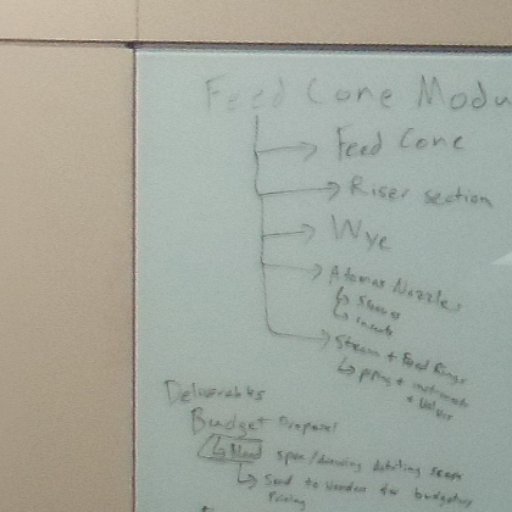 Feed Cone Modu
Feed Cone
Riser section
Wye
Atomax Nozzles
Sleeves
inserts
Steam + Feed Rings
piping + instruments
+ Valves
Deliverables
Budget Proposal
Need spec/drawing detailing scope
Send to vendors for budgetary
Pricing